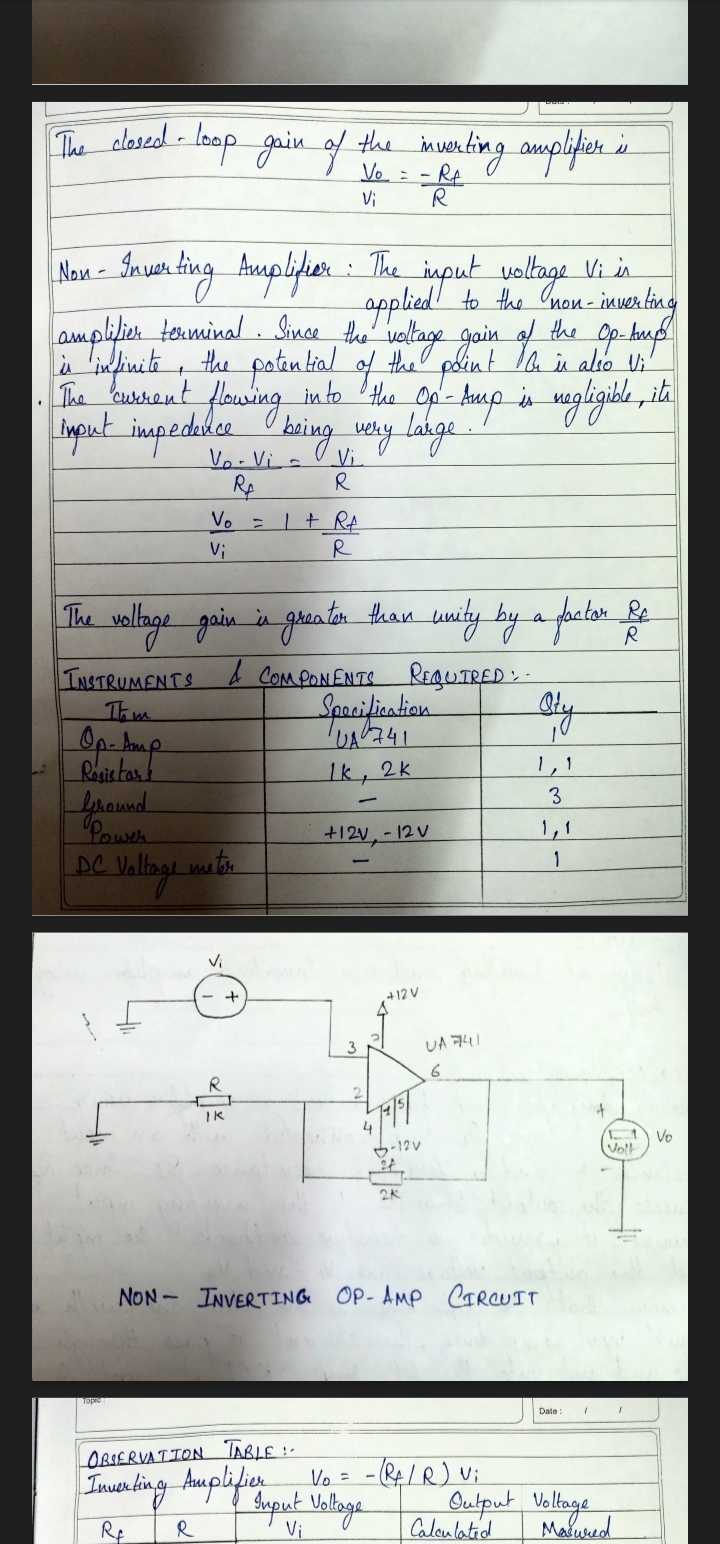 Date : / /
The closed-loop gain of the inverting amplifier is
Vo/Vi = -Rf/R
Non-Inverting Amplifier : The input voltage Vi is
applied to the non-inverting
amplifier terminal. Since the voltage gain of the Op-Amp
is infinite, the potential of the point G is also Vi
. The current flowing into the Op-Amp is negligible, its
input impedence being very large.
Vo - Vi / Rf = Vi / R
Vo/Vi = 1 + Rf/R
The voltage gain is greater than unity by a factor Rf/R
INSTRUMENTS & COMPONENTS REQUIRED:-
Item Specification Qty
Op-Amp UA 741 1
Resistors 1K, 2K 1,1
Ground - 3
Power +12V, -12V 1,1
DC Voltage meter - 1
Vi
- +
+12V
3 7 UA 741
6
R
1K
2
4 1 5
-12V
2K
+
Volt Vo
-
NON- INVERTING OP-AMP CIRCUIT
Topic :
Date : / /
OBSERVATION TABLE:-
Inverting Amplifier Vo = -(Rf/R) Vi
Input Voltage Output Voltage
Rf R Vi Calculated Measured